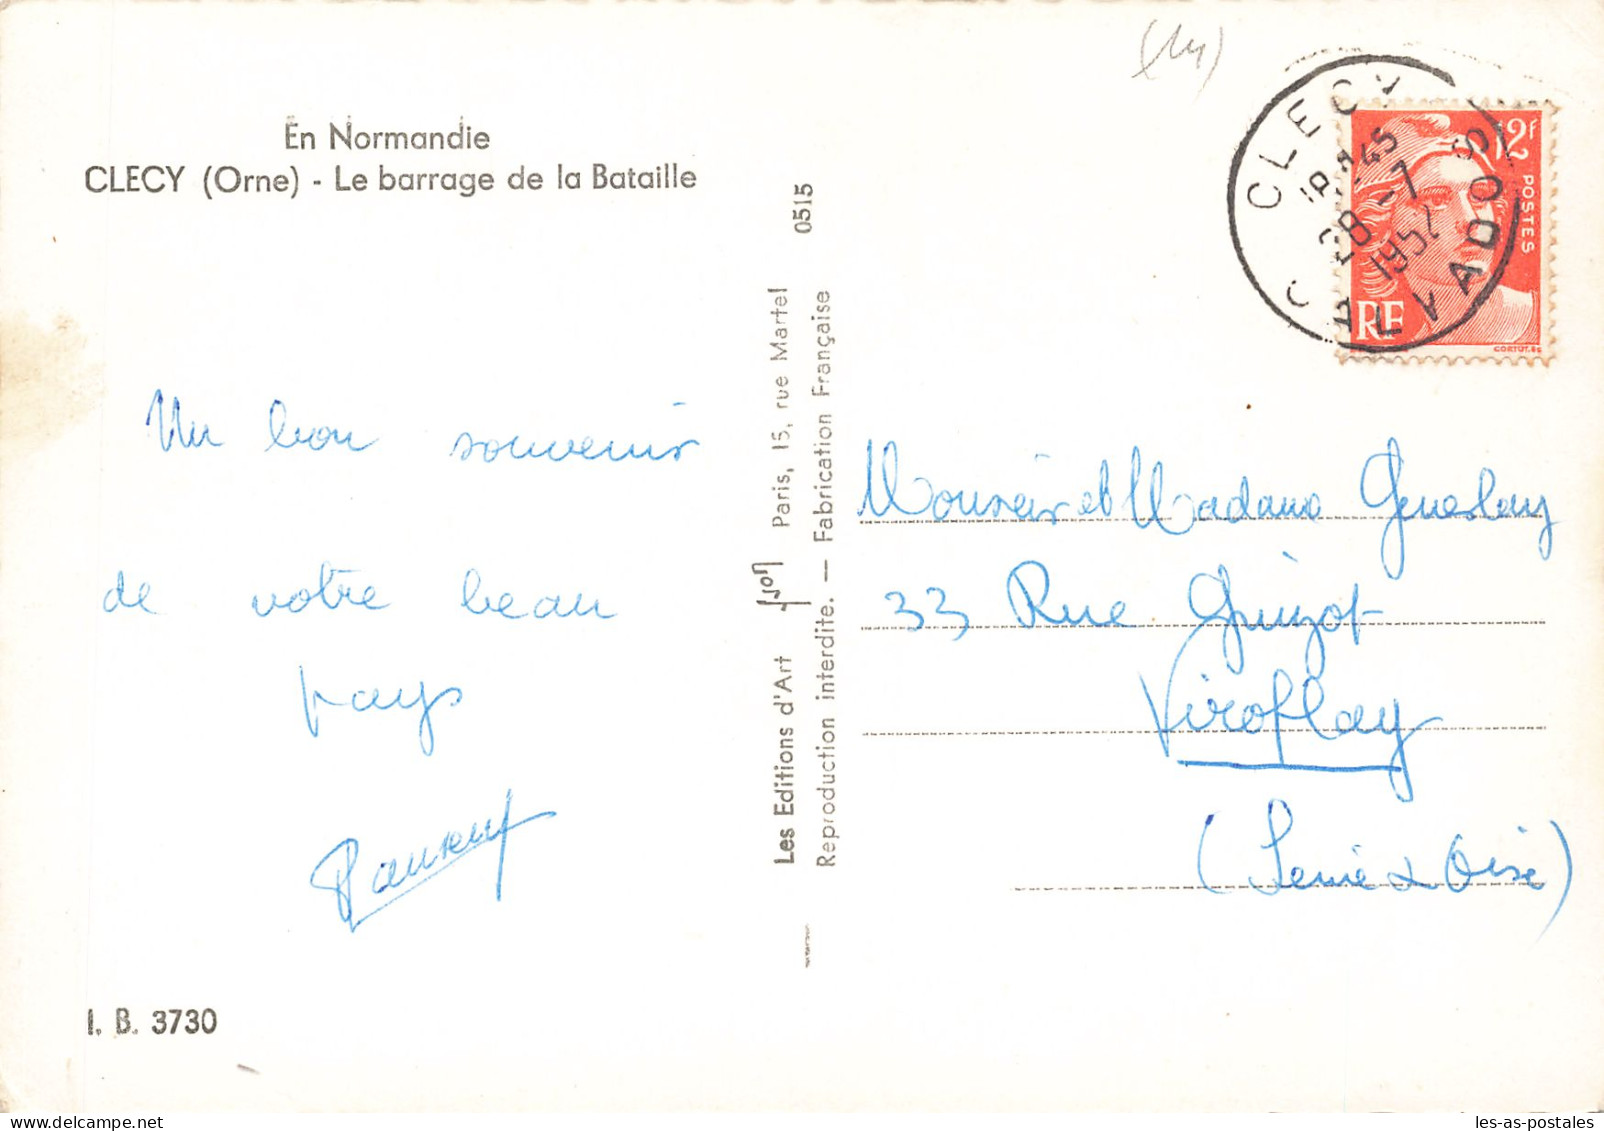 (14)
En Normandie
CLECY (Orne) - Le barrage de la Bataille
Un bon souvenir
de votre beau
pays
I. B. 3730
Les Editions d'Art Yvon Paris, 15, rue Martel 0515
Reproduction interdite. — Fabrication Française
CLECY
CALVADOS
28 -7
1952
12f
POSTES
RF
CORTOT. SC
Monsieur et Madame Gueslay
33 Rue Guizot
Viroflay
(Seine & Oise)
les-as-postales